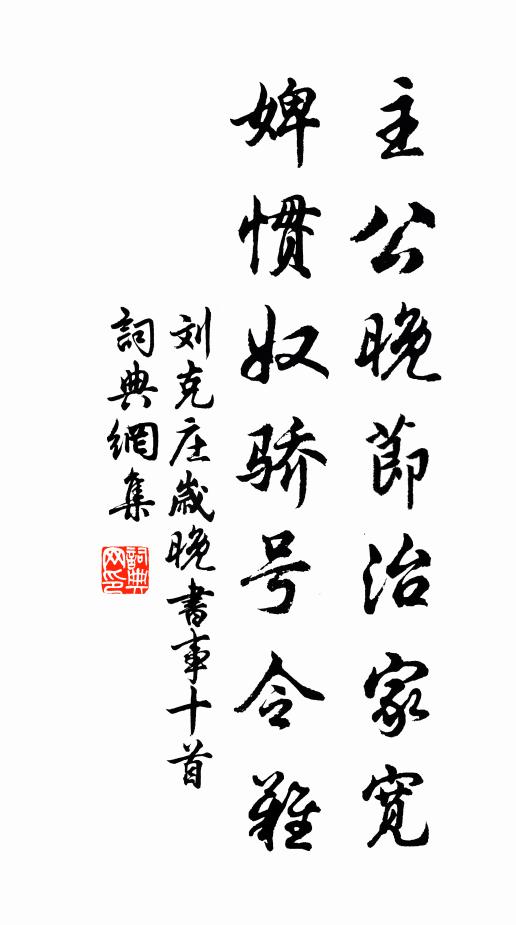 主公晚節治家寬
婢慣奴骄号令難
刘克庄歲晚書事十首
詞典網集
詞典網印